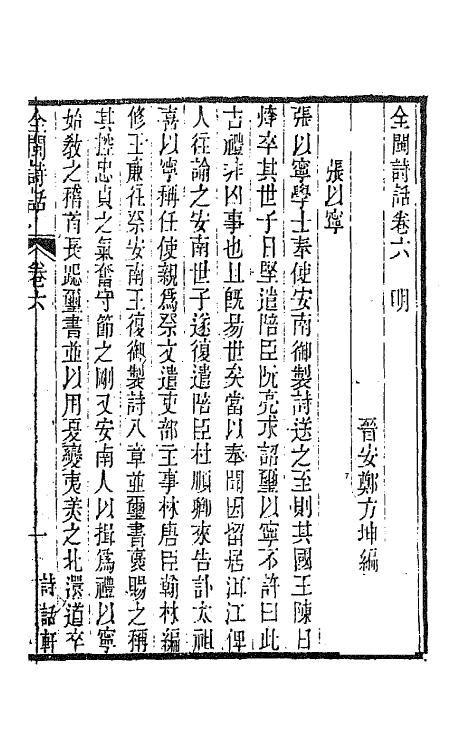 全閩詩話卷六　明
晉安鄭方坤編
張以寧
張以寧學士奉使安南御製詩送之至則其國王陳日
煃卒其世子日堅遣陪臣阮亮求詔璽以寧不許曰此
古禮非凶事也且旣易世矣當以奉聞因留居洱江俾
人往諭之安南世子遂復遣陪臣杜順卿來告訃太祖
喜以寧稱任使親爲祭文遣吏部主事林唐臣翰林編
修王廉往祭安南王復御製詩八章並璽書襃賜之稱
其搃忠貞之氣奮守節之剛又安南人以揖爲禮以寧
始敎之稽首長跽璽書並以用夏變夷美之北還道卒
全閩詩話
卷六
一
詩話軒